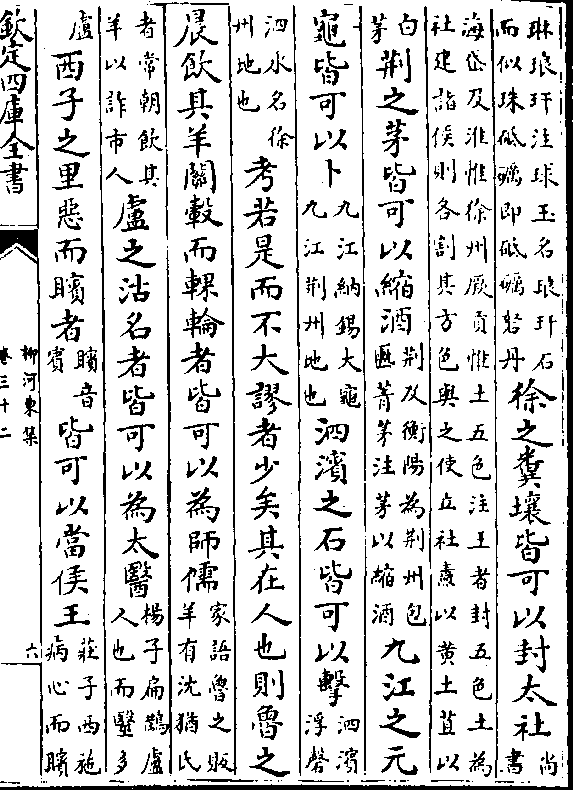 琳琅玕注球玉名琅玕石而似珠砥礪即砥礪砮丹徐之糞壤皆可以封太社尚書
海岱及淮惟徐州厥貢惟土五色注王者封五色土為社建諸侯則各割其方色與之使立社燾以黄土苴以
白茅荆之茅皆可以縮酒荆及衡陽為荆州包匭菁茅注茅以縮酒九江之元
龜皆可以卜九江納錫大龜九江荆州地也泗濱之石皆可以擊泗濱浮磬
泗水名徐州地也考若是而不大謬者少矣其在人也則魯之
晨飲其羊關轂而輠輪者皆可以為師儒家語魯之販羊有沈猶氏
者常朝飲其羊以詐市人盧之沽名者皆可以為太醫楊子扁鵲盧人也而毉多
盧西子之里惡而矉者矉音賓皆可以當侯王莊子西施病心而矉
欽定四庫全書
柳河東集
卷三十二
六